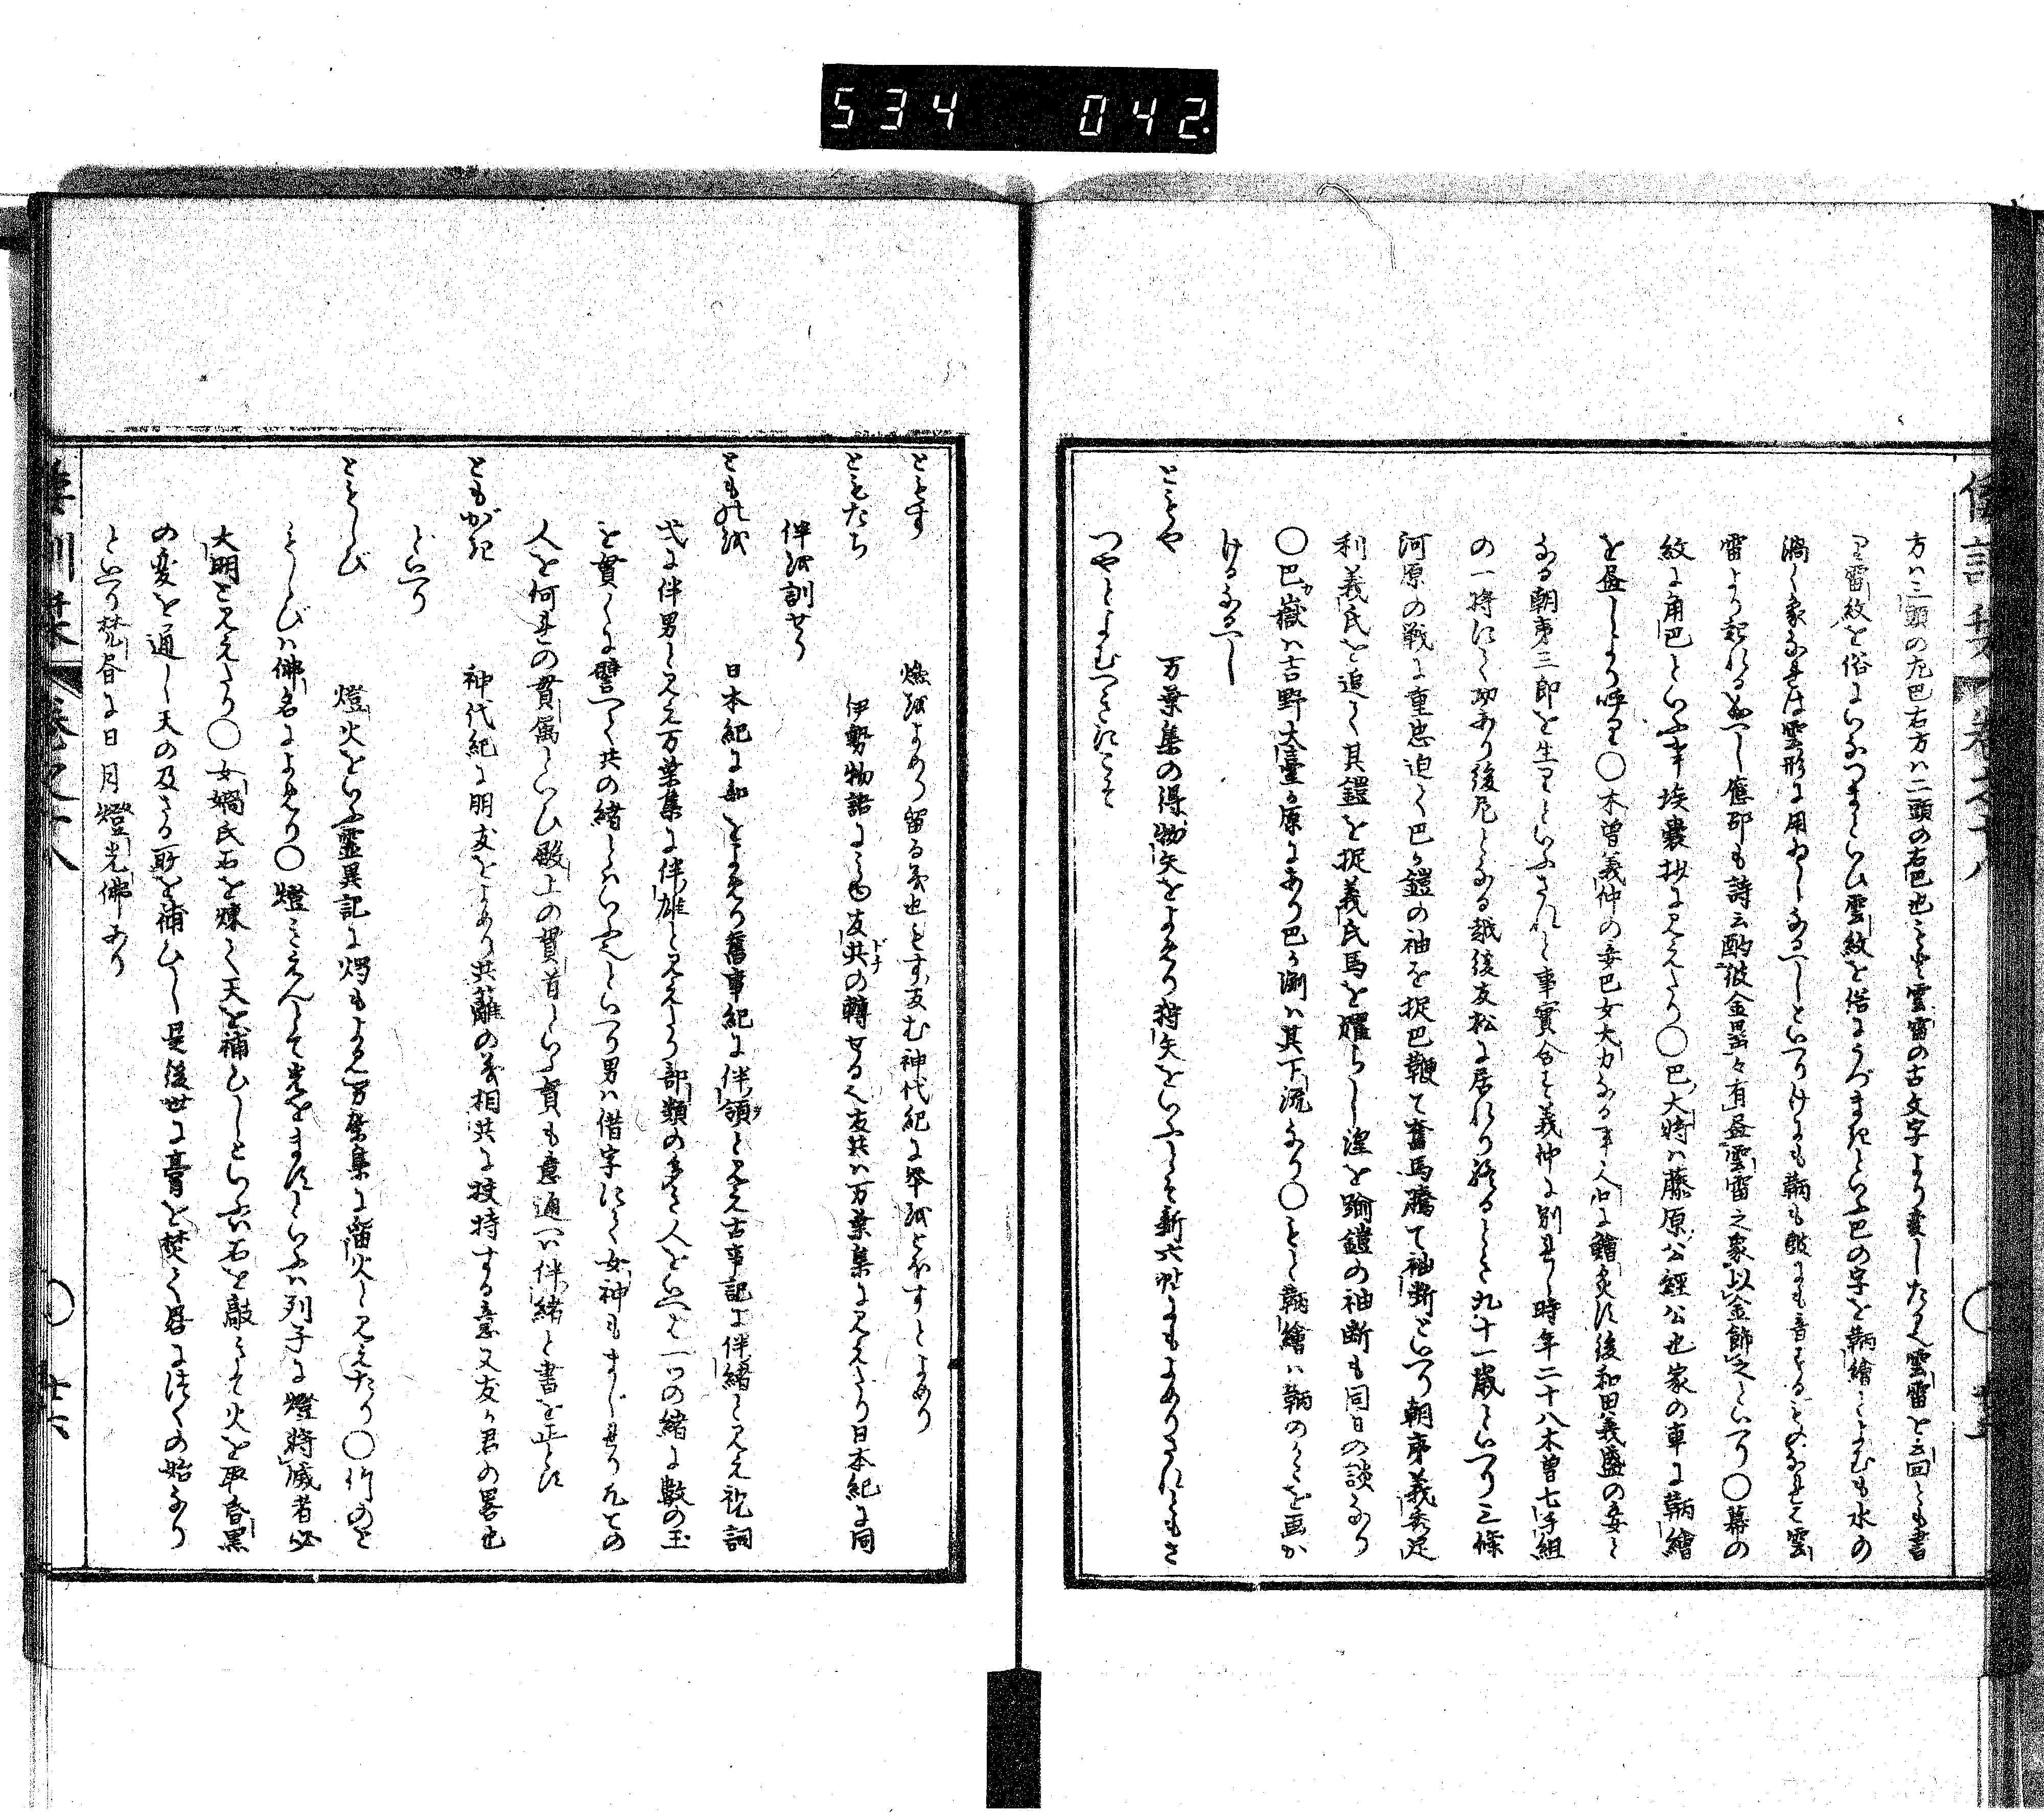 534 042.
方ハ三頭の左巴右方ハ二頭の右巴也もと雲雷の古文字より変したる也雲雷を云回とも書
り雷紋を俗にいなつまといひ雲紋を俗にうづまきといふ巴の字を鞆繪とよむも水の
渦く象なれは雲形に用ゐしなるへしといへりけにも鞆も皷にも音するものなれと雲
雷より起れるなるへし應劭も詩云酌彼金罍々有畳雲雷之象以金飾之といへり〇幕の
紋に角巴といふ事埃嚢抄に見えたり〇巴大将ハ藤原公經公也家の車に鞆繪
を畳しより呼り〇木曽義仲の妾巴女大力なる事人口に鱠炙す後和田義盛の妾と
なる朝夷三郎を生りといふされと事實合す義仲に別れし時年二十八木曽七手組
の一将にて功あり後尼となる越後友松に居れり終るとき九十一歳といへり三條
河原の戦に重忠迫て巴か鎧の袖を捉巴鞭て奮馬騰て袖断といへり朝夷義秀足
利義氏を追て其鎧を捉義氏馬を躍らし湟を踰鎧の袖断も同日の談なり
〇巴か嶽ハ吉野大臺か原にあり巴か渕ハ其下流なり〇もと鞆繪ハ鞆のかたを画か
けるなるへし
ともや 万葉集の得物矢をよめり猟矢をいふとそ新六帖にもよめりされともさ
つやとよむへきにこそ
ともす 燭をよめり留る義也とす反む神代紀に挙をとぼすとよめり
ともたち 伊勢物語にみゆ友共の轉せる也友共ハ万葉集に見えたり日本紀に同
伴を訓せり
とものを 日本紀に部をよめり舊事紀に伴領と見え古事記に伴緒と見え祝詞
式に伴男と見え万葉集に伴雄と見えたり部類の多き人をいへは一ツの緒に数の玉
を貫くに譬へて共の緒とハいふ也といへり男ハ借字にて女神もましせり凡その
人を何其の貫属といひ殿上の貫首といふ貫も意通へハ伴緒と書を正とす
ともがき 神代紀に朋友をよめり共籬の義相共に扶持する意又友か君の畧也
といへり
ともしび 燈火をいふ靈異記に燭もよめ万葉集に留火と見えたり〇行のと
もしびハ佛名によめり〇燈きえんとて光をますといふハ列子に燈将滅者必
大明と見えたり〇女媧氏石を煉て天を補ひしといふハ石を敲きて火を取昏黒
の変を通し天の及さる所を補ひし是後世に膏を焚て晷に継くの始なり
といへり梵昏に日月燈光佛あり
倭訓栞 巻之十八 〇 廿六